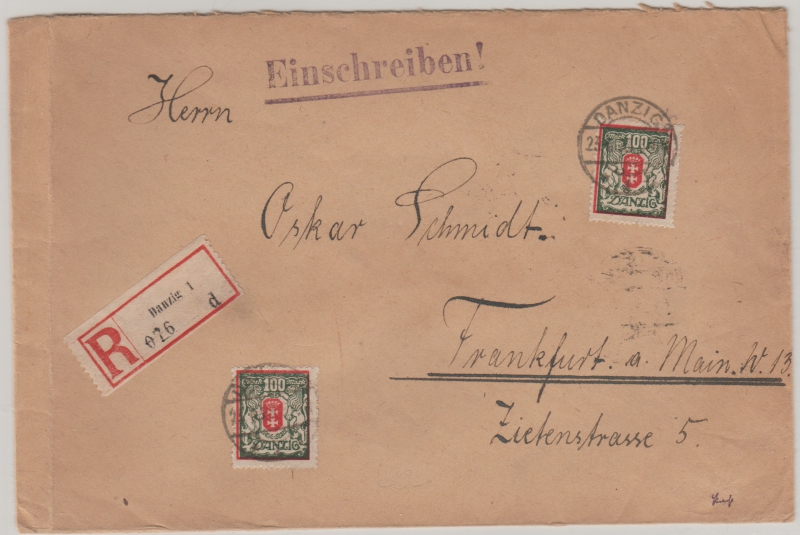 Einschreiben!
Herrn
DANZIG
100
DANZIG
Oskar Schmidt.
Danzig 1
R 026 d
Frankfurt. a. Main. W. 13.
Zietenstrasse 5.
100
DANZIG